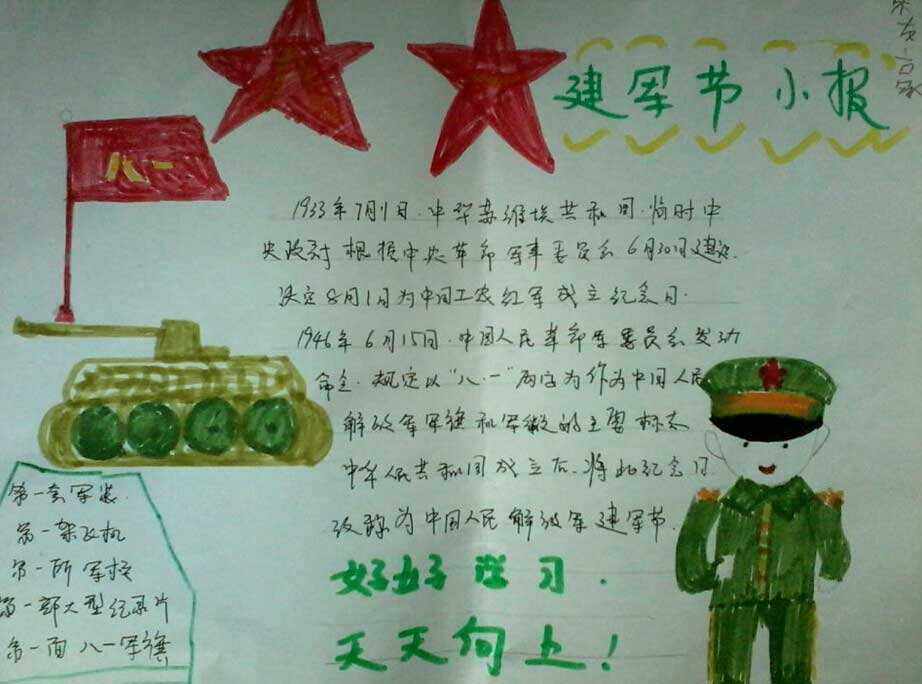 八一
建军节小报
八一
1933年7月1日.中华苏维埃共和国.临时中
央政府根据中央革命军事委员会6月30日建议.
决定8月1日为中国工农红军成立纪念日.
1946年6月15日.中国人民革命军委员会发动
命令.规定以"八.一"两字为作为中国人民
解放军军旗和军徽的主要标志
中华人民共和国成立后.将此纪念日
改称为中国人民解放军建军节.
好好学习.
天天向上!
第一套军装.
第一架飞机
第一所军校
第一部大型纪录片
第一面八一军旗